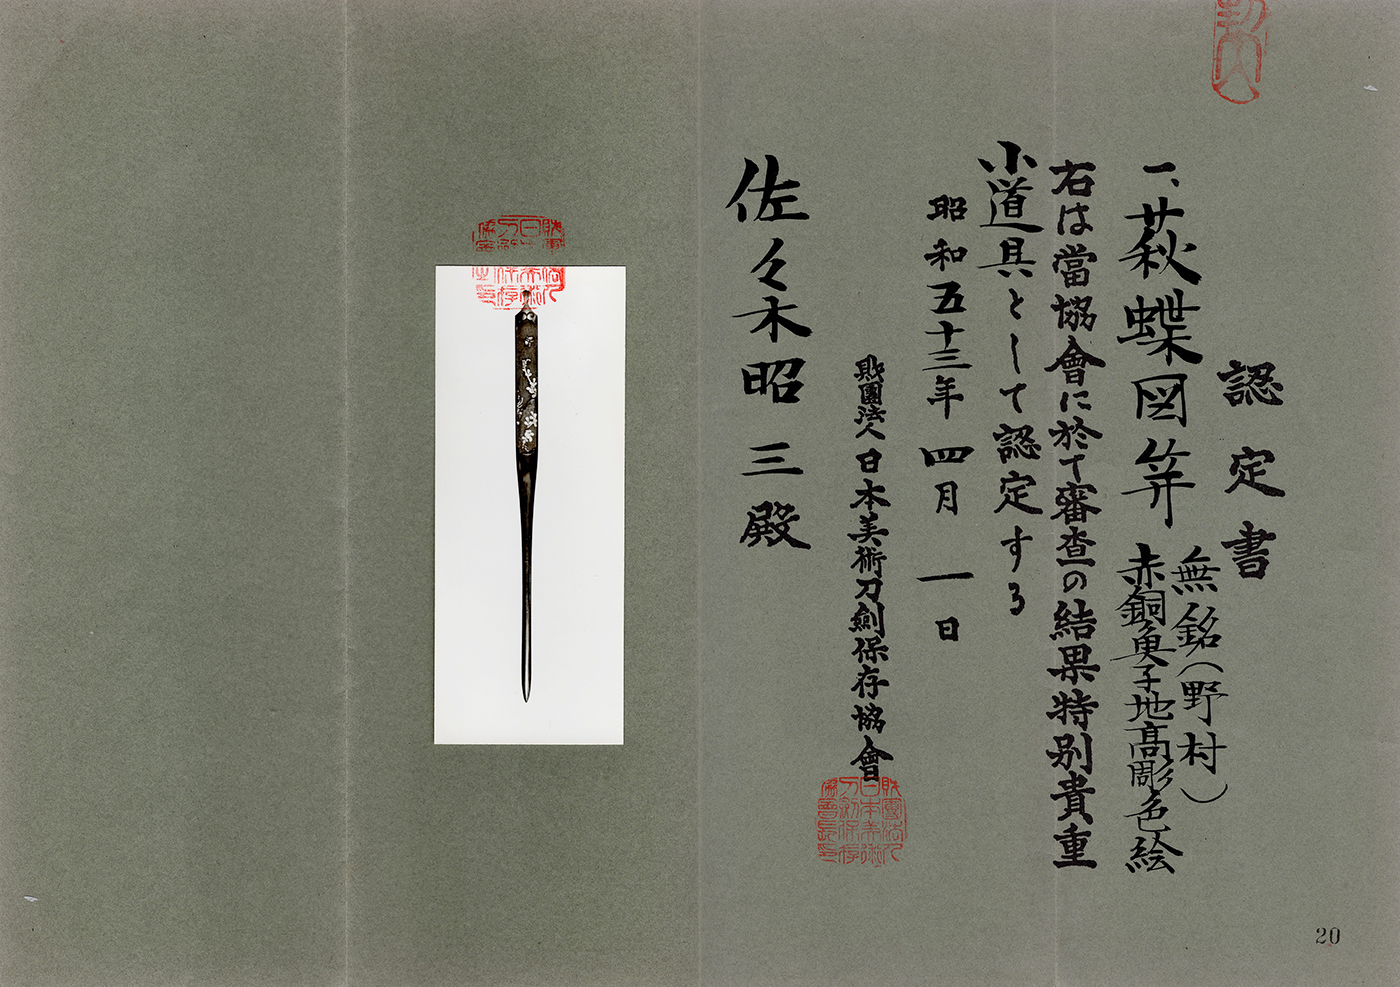 認定書
一、萩蝶図笄
無銘(野村)
赤銅魚子地高彫色絵
右は當協會に於て審査の結果特別貴重
小道具として認定する
昭和五十三年四月一日
財團法人日本美術刀劍保存協會
佐々木昭三殿
20